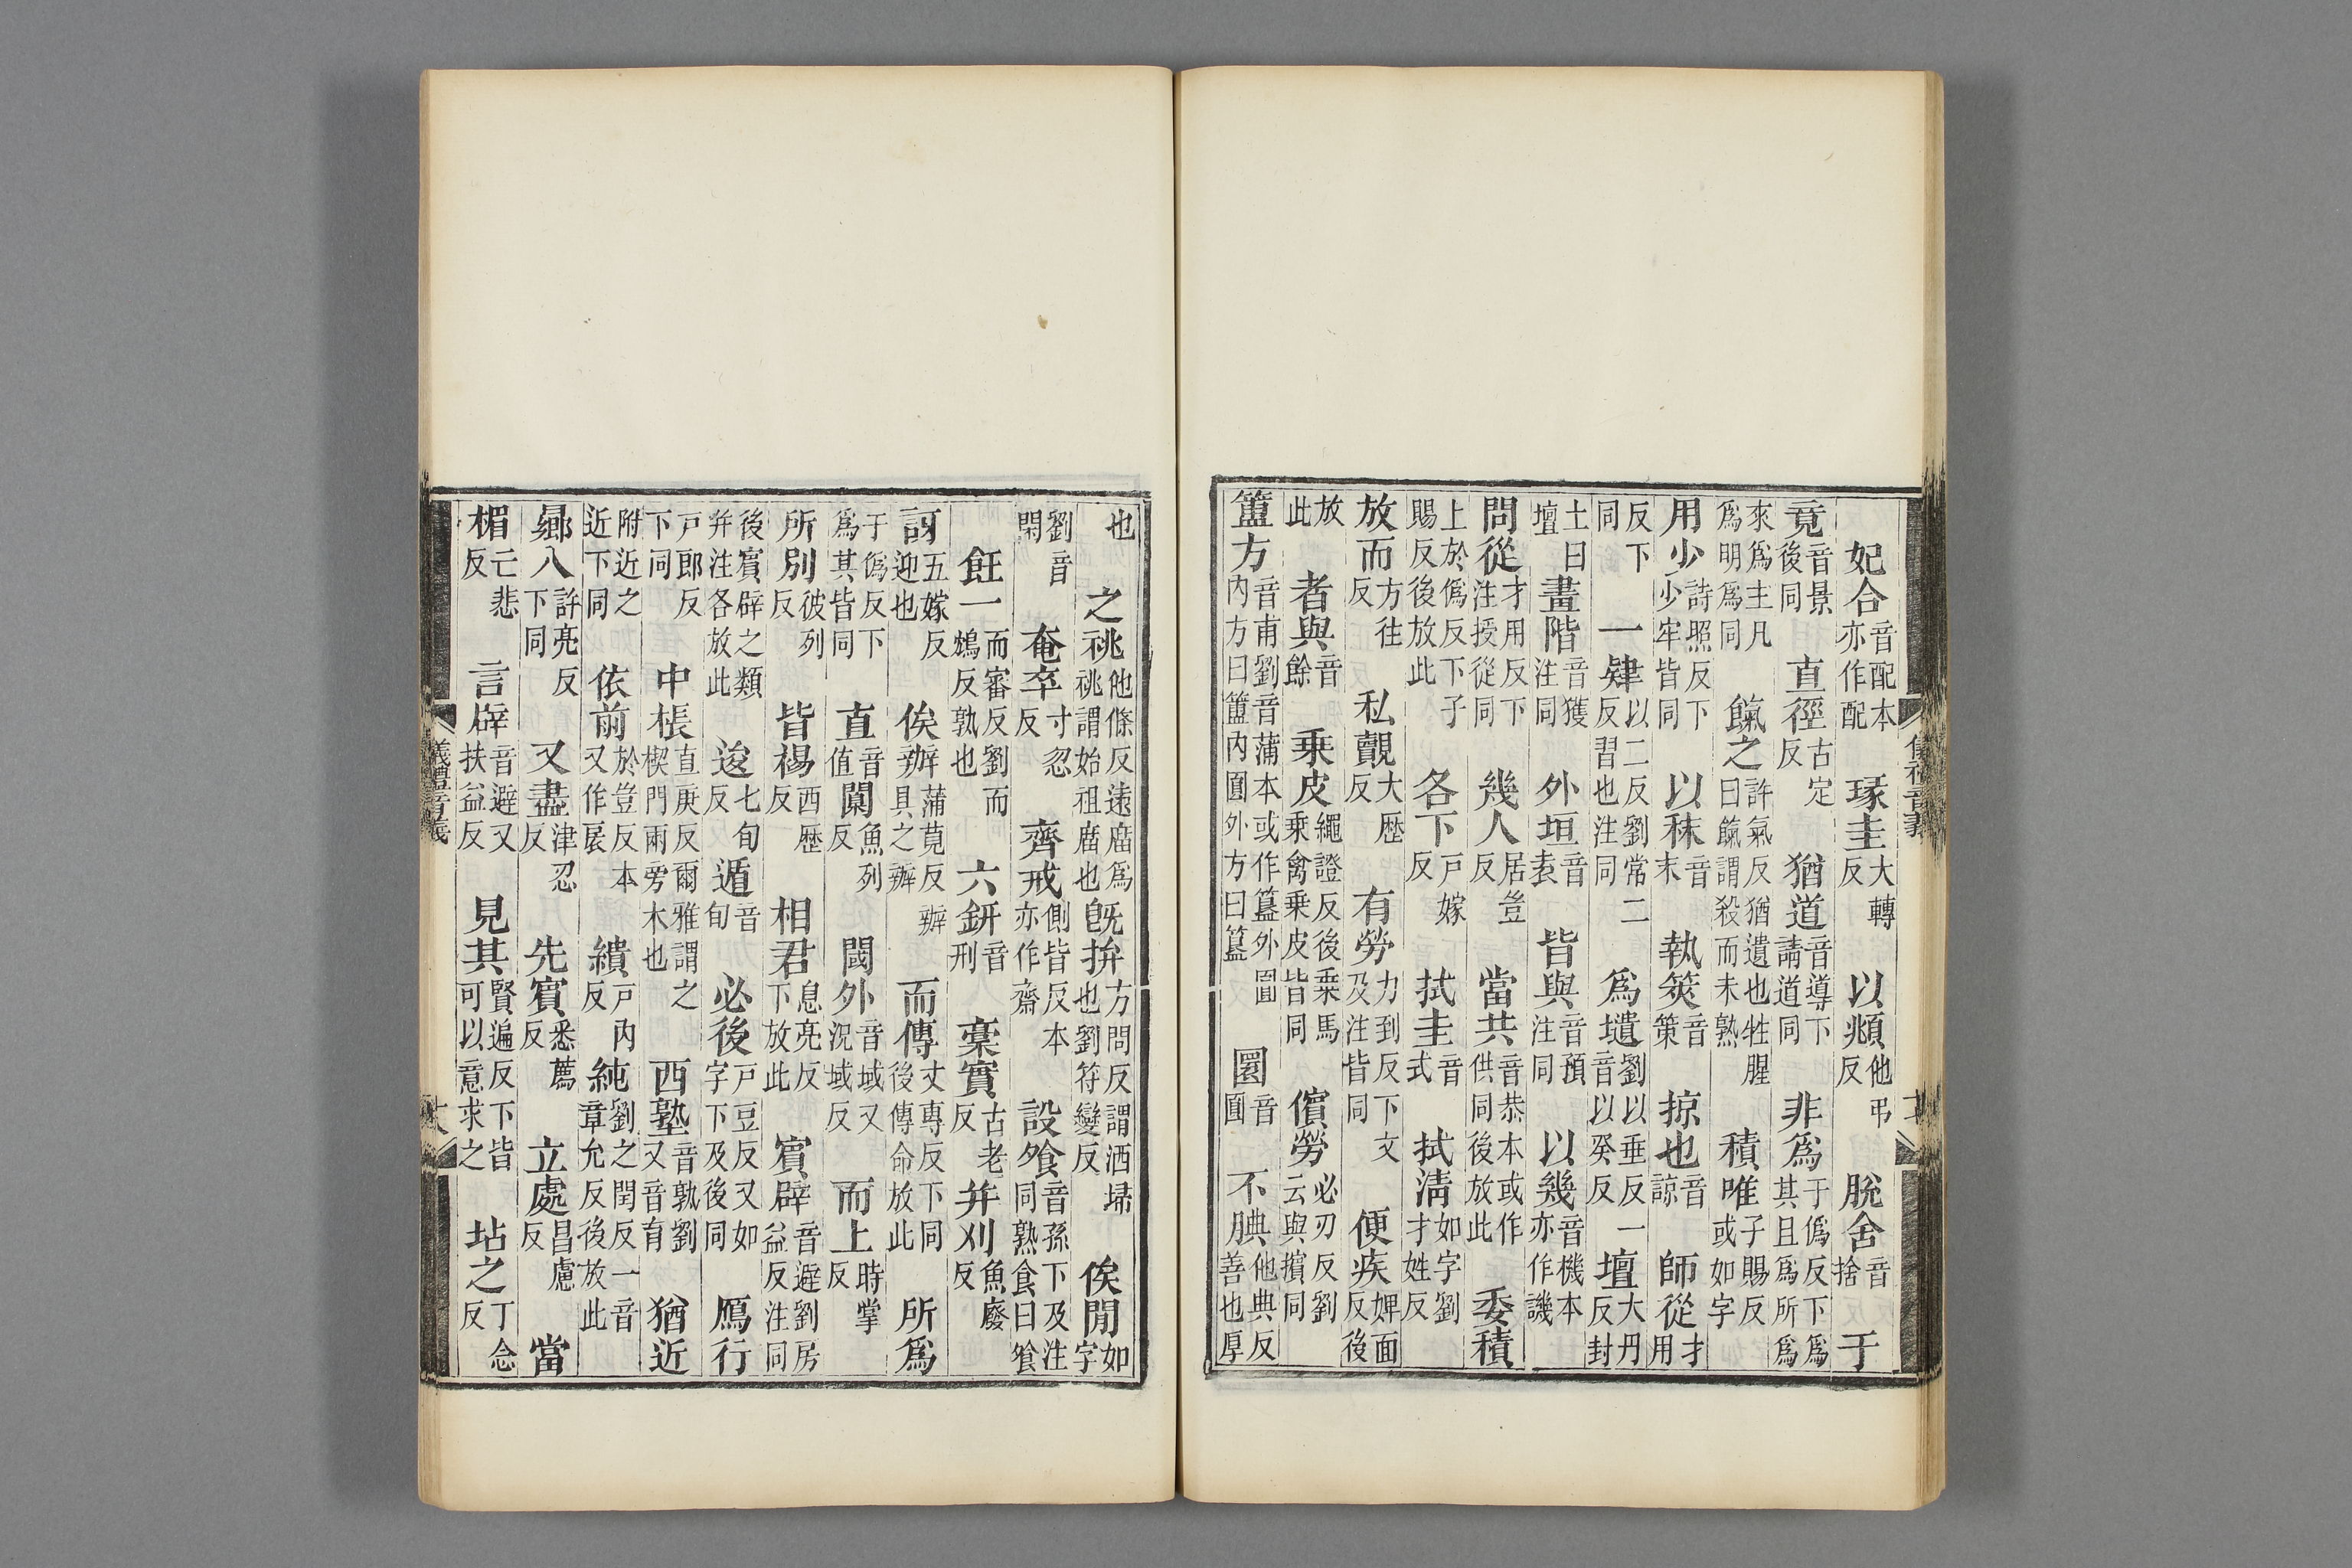 妃合音配本亦作配瑑圭大轉反以頫他弔反脫舍音捨于
竟音景後同直徑古定反猶道音導下請道同非爲于僞反下爲其且爲所爲
來爲主凡爲明爲同餼之許氣反猶遺也牲腥曰餼謂殺而未熟積唯子賜反或如字
用少詩照反下少牢皆同以秣音末執筴音策掠也音諒師從才用
反下同一肄以二反劉常二反習也注同爲壝劉以垂反一音以癸反壇大丹反封
土曰壇畫階音獲注同外垣音袁皆與音預注同以幾音機本亦作譏
問從才用反下注授從同幾人居豈反當共音恭本或作供同後放此委積
上於僞反下子賜反後放此各下戶嫁反拭圭音式拭清如字劉才姓反
放而方往反私覿大歷反有勞力到反下文及注皆同便疾婢面反後
放此者與音餘乗皮繩證反後乗馬乗禽乗皮皆同儐勞必刃反劉云與擯同
簠方音甫劉音蒲本或作簋外圓内方曰簠内圓外方曰簋圜音圓不腆他典反善也厚
也之祧他條反遠廟爲祧謂始祖廟也旣拚方問反謂洒埽也劉符變反俟閒如字
劉音閑奄卒寸忍反齊戒側皆反本亦作齋設飧音孫下及注同熟食曰飧
飪一而審反劉而鴆反孰也六鉶音刑槀實古老反并刈魚廢反
訝五嫁反迎也俟辦蒲莧反辦具之辦而傳丈專反下同後傳命放此所爲
于僞反下爲其皆同直音值闑魚列反閾外音域又況域反而上時掌反
所別彼列反皆裼西歷反相君息亮反下放此賓辟音避劉房益反注同
後賓辟之類并注各放此逡七旬反遁音旬必後戶豆反又如字下及後同鴈行
戶郎反下同中棖直庚反爾雅謂之楔門兩旁木也西塾音孰劉又音育猶近
附近之近下同依前於豈反本又作扆繢戶内反純劉之閏反一音章允反後放此
曏入許亮反下同又盡津忍反先賓悉薦反立處昌慮反當
楣亡悲反言辟音避又扶益反見其賢遍反下皆可以意求之坫之丁念反
儀禮音義